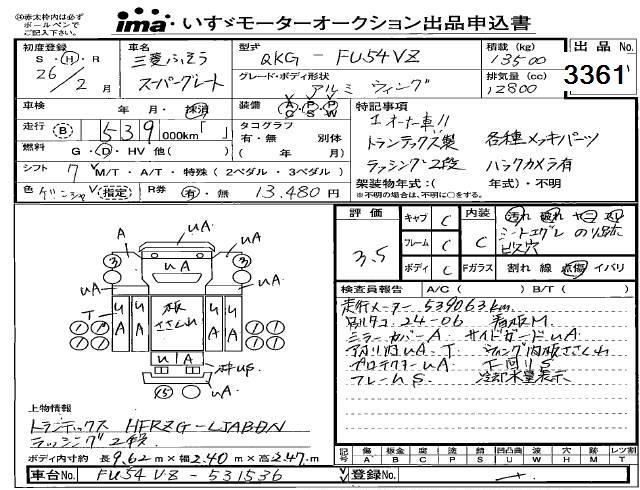 ㊟赤太枠内は必ず ボールペンで ご記入下さい。
ima いすゞモーターオークション出品申込書
初度登録 S・H・R 26年 2月
車名 三菱ふそう スーパーグレート
型式 QKG-FU54VZ
グレード・ボディ形状 アルミ ウィング
積載(kg) 13500
排気量(cc) 12800
出品 No. 3361
車検 年・月・抹消
装備 AC・PS・PW
特記事項
1オーナー車!!
トランテックス製 各種メッキパーツ
ラッシング2段 バックカメラ有
架装物年式:( 年式)・不明
※不明の場合は、不明に○をする。
走行 B 539 000km「 」
タコグラフ 有・無 別体 ( 年 月)
燃料 G・D・HV 他( )
シフト 7 M/T・A/T・特殊(2ペダル・3ペダル)
色 指定 R券 有・無 13,480円
評価 3.5
キャブ C
フレーム C
ボディ C
内装 C 汚れ 破れ
シートエグレ のり跡
ビス穴
Fガラス 割れ 線 点傷 イバリ
検査員報告 A/C( ) B/T( )
走行メーター539063km
別タコ 24-06 看板M
ミラーカバーA サイドガードuA
アオリ内uA T ウィング内板ささくれ
プロテクターuA 下回りS
フレームS 冷却水量表示
A
uA
3
3
uA
uA
T
uA
uA
板 ささくれ
uA
uA
uS
15
uA
上物情報
トランテックス HFRZG-LJABDN
ラッシング2段
ボディ内寸約 長9.62m×幅2.40m×高2.47m
記号 傷A 板金B 腐C 塗P 錆S 凹凸曲U 波W 穴H 跡M レツ割T
車台No. FU54VZ-531536
登録No.